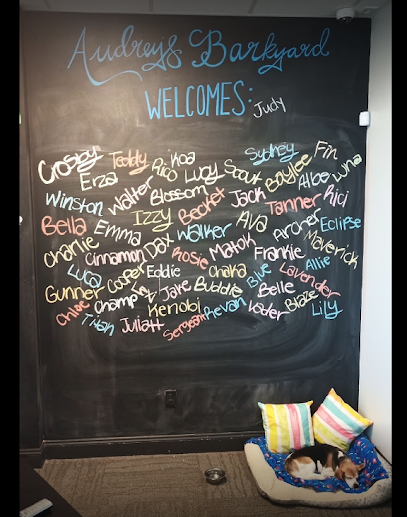 Audrey's Barkyard
WELCOMES: Judy
Crosby Teddy Rico Koa Lucy Scout Sydney Baylee Fin
Erza Walter Blossom Jack Albe Luna
Winston Izzy Becket Tanner Rici
Bella Emma Walker Ava Archer Eclipse
Charlie Cinnamon Dax Rosie Matok Frankie Maverick
Luca Cooper Eddie Chaka Blue Lavender Allie
Gunner Champ Jake Buddie Belle
Chloe Titan Juliatt Kenobi Sergeant Revan Vader Blaze Lily